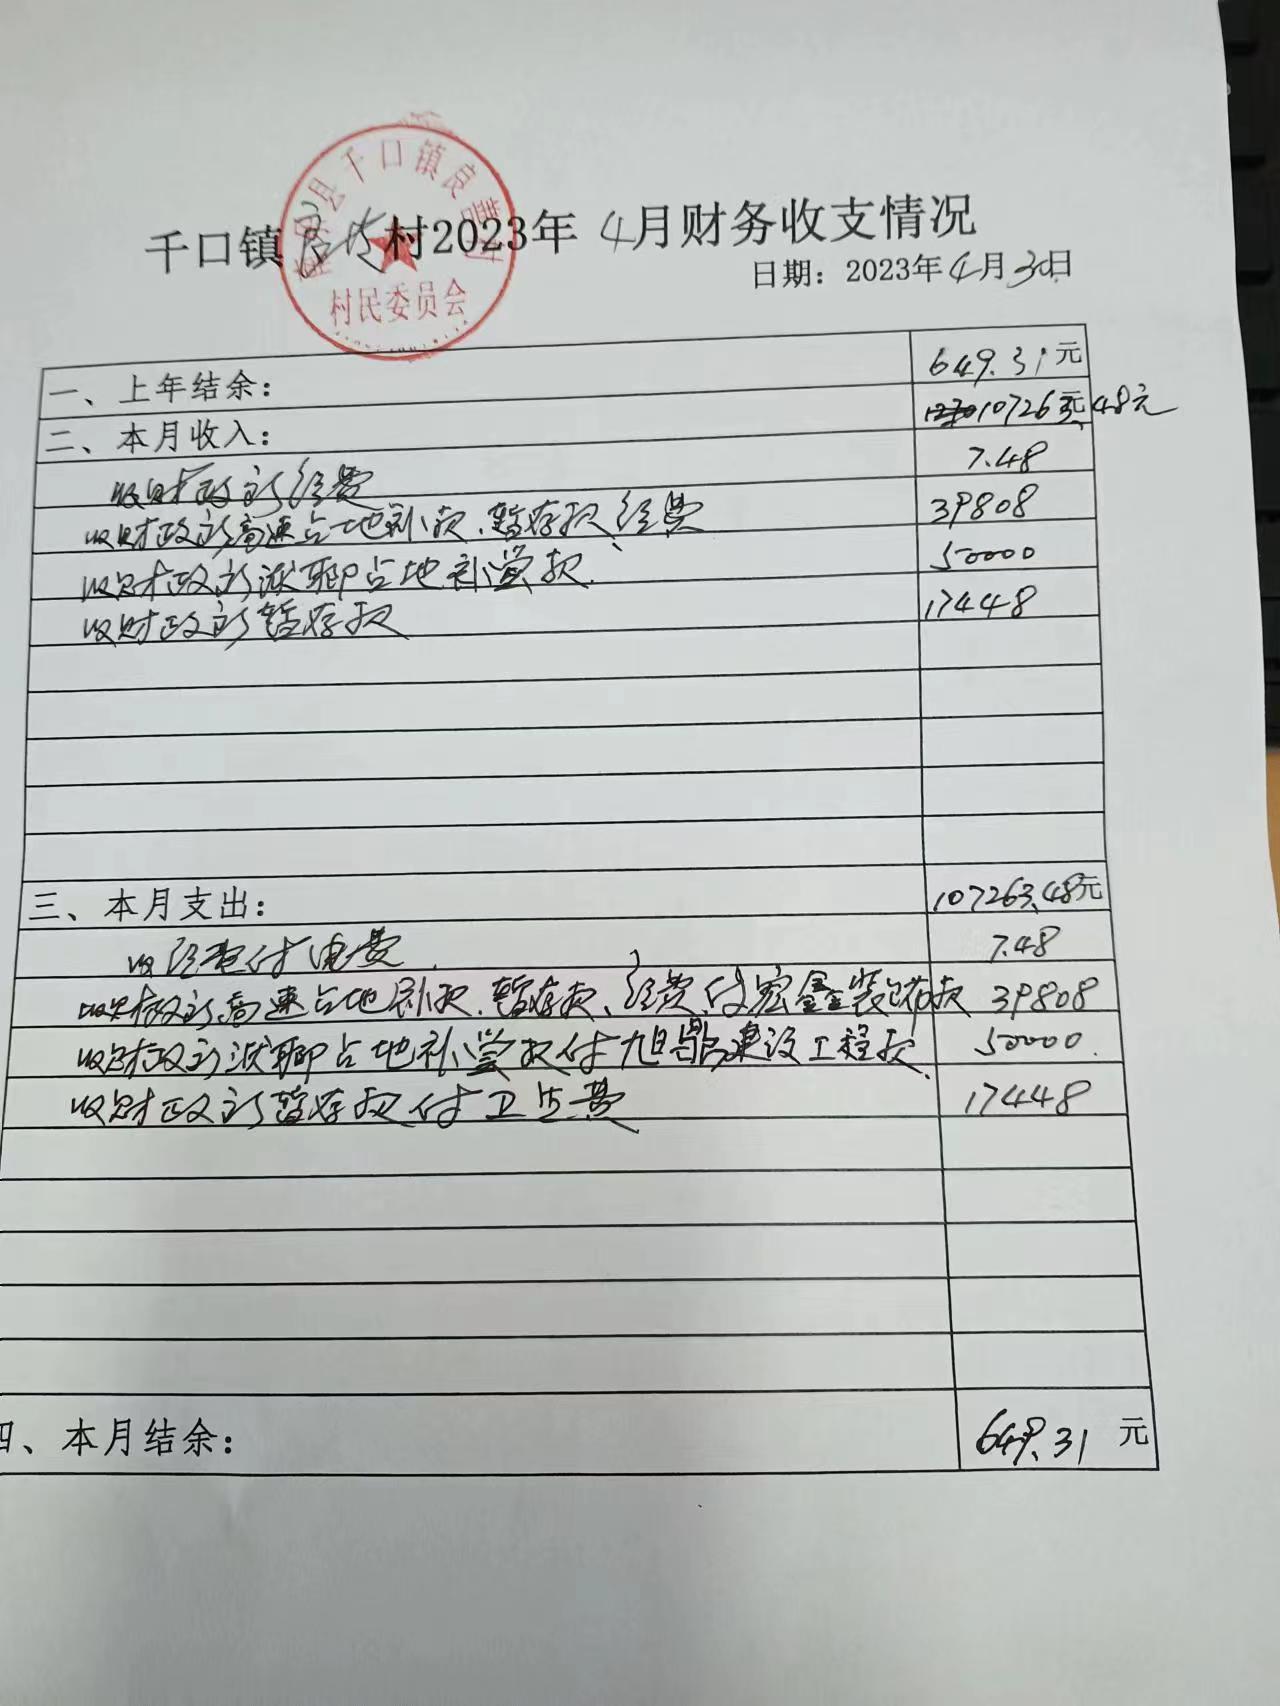 千口镇 村2023年4月财务收支情况
县千口镇良善村
村民委员会
日期：2023年4月30日
一、上年结余： 649.31元
二、本月收入： 107263.48元
收财政所经费 7.48
收财政所高速占地补款、暂存款、经费 39808
收财政所 聊占地补偿款 50000
收财政所暂存款 17448
三、本月支出： 107263.48元
收经费付电费 7.48
收财政所高速占地补款、暂存款、经费付宏鑫装饰款 39808
收财政所 聊占地补偿款付旭 建设工程款 50000
收财政所暂存款付卫生费 17448
四、本月结余： 649.31元